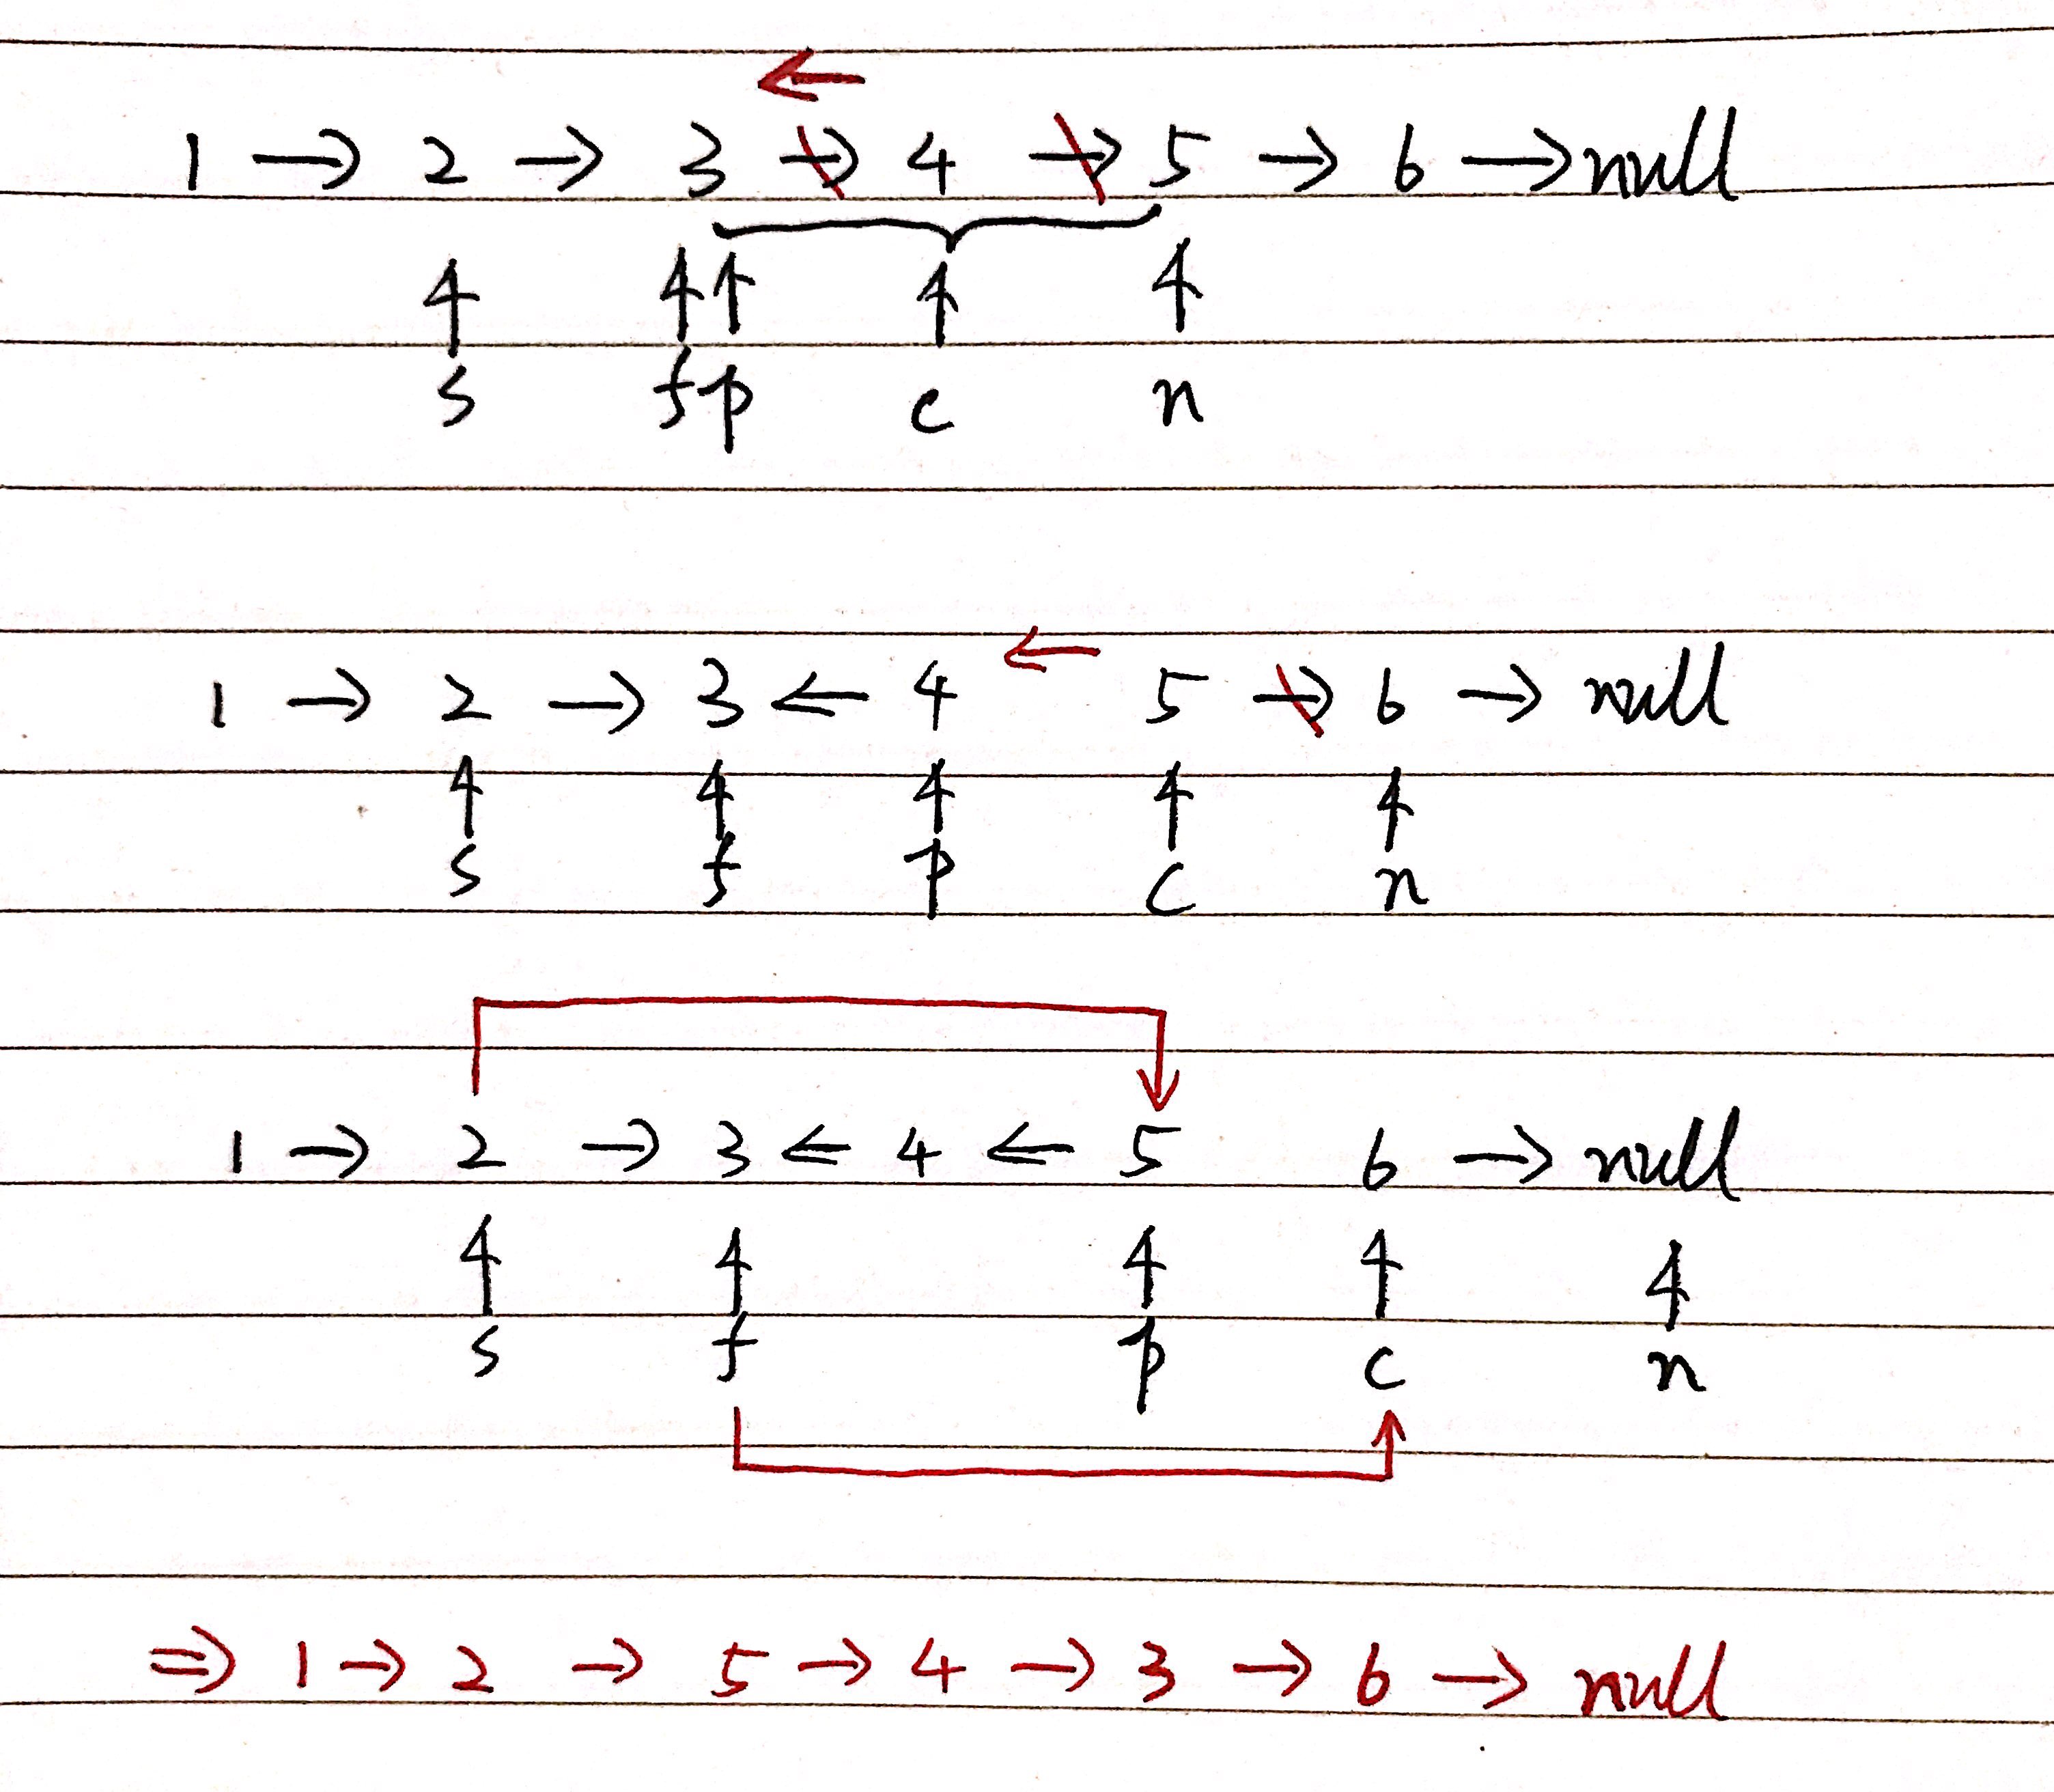 1 → 2 → 3 → 4 → 5 → 6 → null
s f p c n
1 → 2 → 3 ← 4 5 → 6 → null
s f p c n
1 → 2 → 3 ← 4 ← 5 6 → null
s f p c n
⇒ 1 → 2 → 5 → 4 → 3 → 6 → null